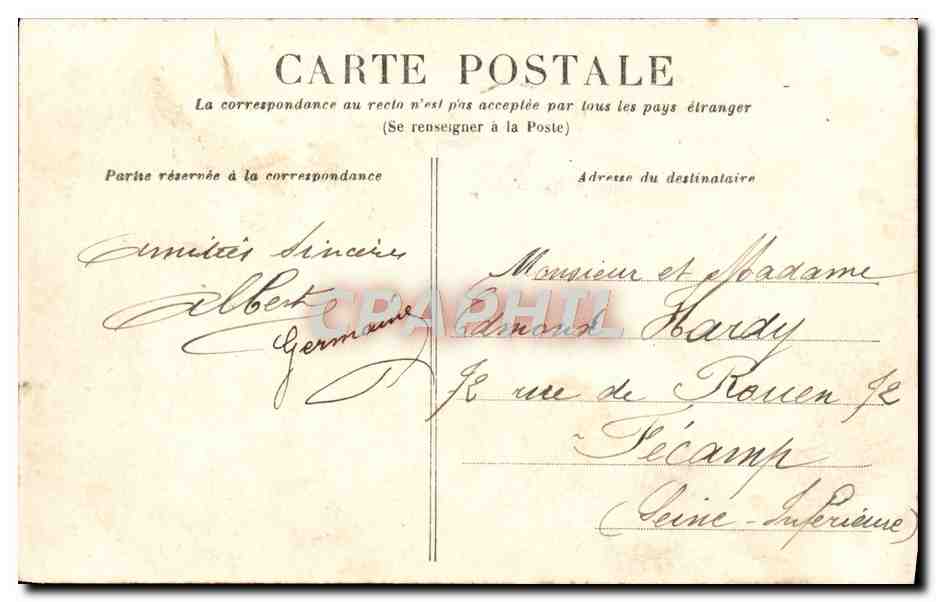 CARTE POSTALE
La correspondance au recto n'est pas acceptée par tous les pays étranger
(Se renseigner à la Poste)
Partie réservée à la correspondance
Amitiés Sincères
Albert
Germaine
Adresse du destinataire
Monsieur et Madame
Edmond Hardy
72 rue de Rouen 72
Fécamp
(Seine-Inférieure)
CPAPHIL